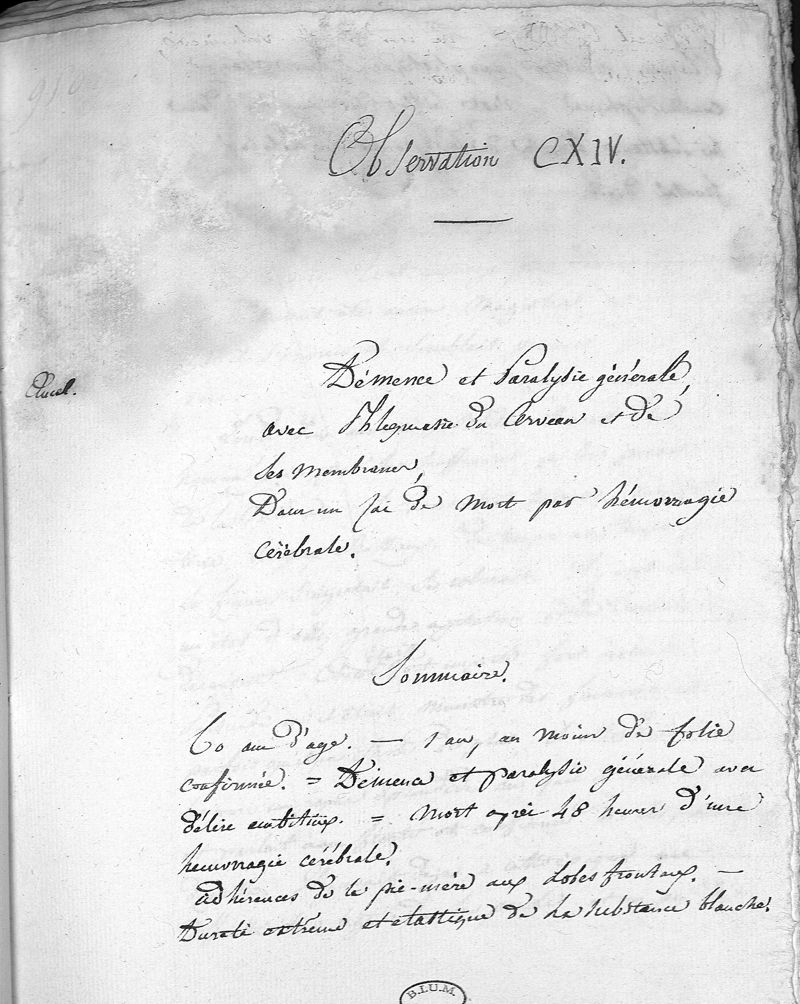 Observation CXIV.
Démence et Paralysie générale,
avec Phlegmasie du Cerveau et de
ses membranes,
Dans un cas de mort par hémorragie
cérébrale.
Sommaire.
60 ans d'age. — 1 an, au moins de folie
confirmée. = Démence et paralysie générale avec
délire ambitieux. = Mort après 48 heures d'une
hemorragie cérébrale.
adhérences de la pie-mère aux lobes frontaux. —
Dureté extrême et elastique de la substance blanche.
B.I.U.M.